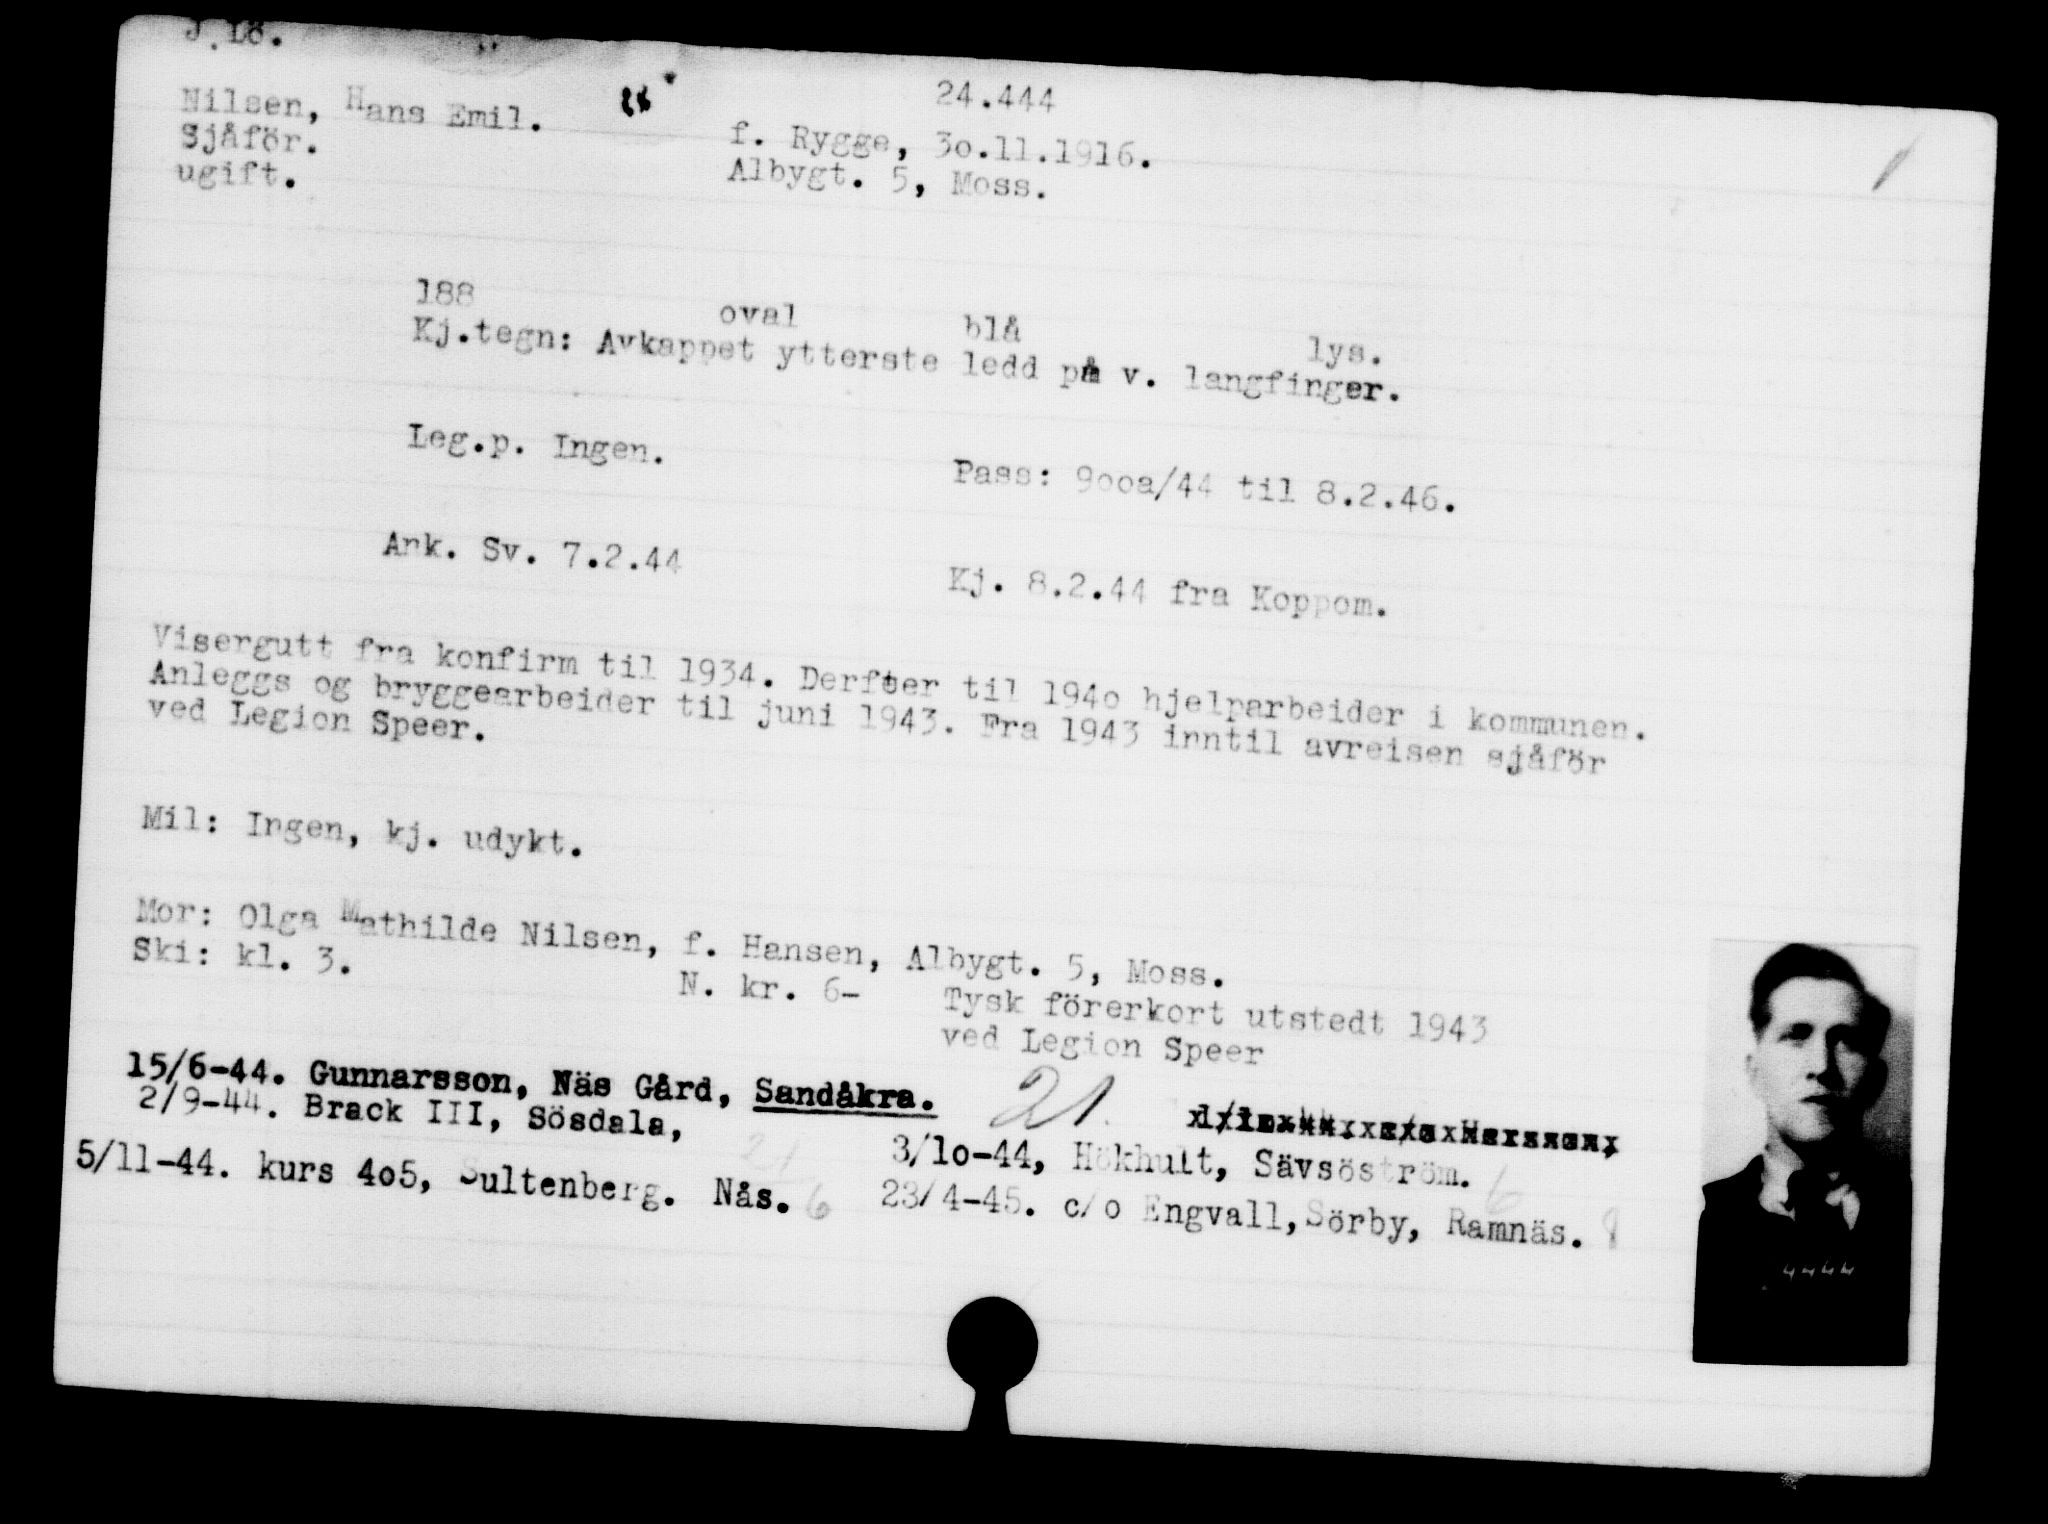 J.Lö.
24.444
Nilsen, Hans Emil. f. Rygge, 3o.11.1916.
Sjåför. Albygt. 5, Moss.
ugift.
188 oval blå lys.
Kj.tegn: Avkappet ytterste ledd på v. langfinger.
Leg.p. Ingen. Pass: 9ooa/44 til 8.2.46.
Ank. Sv. 7.2.44 Kj. 8.2.44 fra Koppom.
Visergutt fra konfirm til 1934. Derfter til 194o hjelparbeider i kommunen.
Anleggs og bryggearbeider til juni 1943. Fra 1943 inntil avreisen sjåför
ved Legion Speer.
Mil: Ingen, kj. udykt.
Mor: Olga Mathilde Nilsen, f. Hansen, Albygt. 5, Moss.
Ski: kl. 3. N. kr. 6- Tysk förerkort utstedt 1943
ved Legion Speer
15/6-44. Gunnarsson, Näs Gård, Sandåkra. 21.
2/9-44. Brack III, Sösdala, 21
3/1o-44, Hökhult, Sävsöström. 6
5/11-44. kurs 4o5, Sultenberg. Nås. 6 23/4-45. c/o Engvall, Sörby, Ramnäs. 8
4444